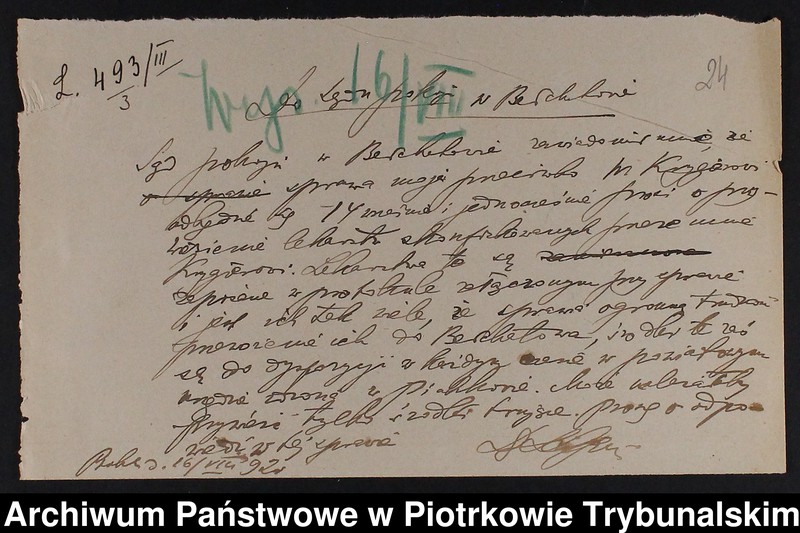 L. 493/III
3
Wysł. 16/VIII
24
Do Sądu pokoju w Bełchatowie
Sąd pokoju w Bełchatowie zawiadomił mnie, że
sprawa moja przeciwko M Krygierowi
odbędzie się 14 i jednocześnie prosi o przy-
wiezienie lekarstw skonfiskowanych przeze mnie
Krygierowi. Lekarstwa te są
w protokule załączonym przy sprawie
i jest ich tak wiele, że sprawa ogromną trudność
przewożenie ich do Bełchatowa, środki te zaś
są do dyspozycji w każdym w powiatowym
urzędzie zdrowia w Piotrkowie. Może należałoby
przywieźć tylko środki trujące. Proszę o odpo-
wiedź w tej sprawie
16/VIII 92
Archiwum Państwowe w Piotrkowie Trybunalskim